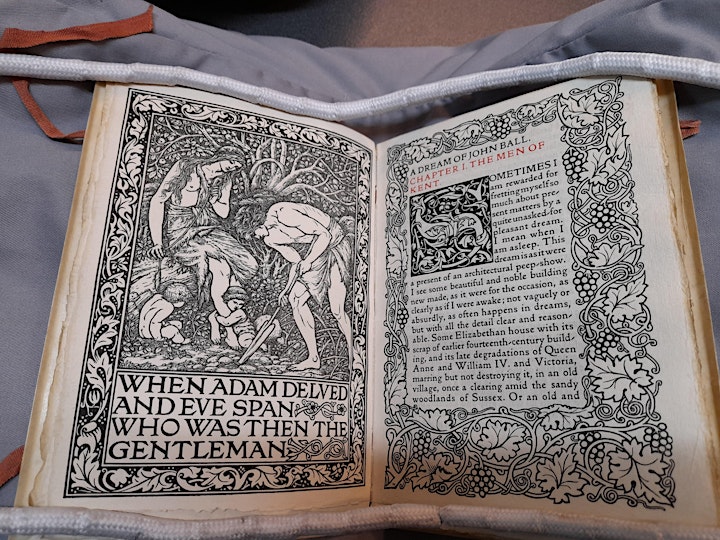 WHEN ADAM DELVED
AND EVE SPAN
WHO WAS THEN THE
GENTLEMAN
A DREAM OF JOHN BALL.
CHAPTER I. THE MEN OF
KENT
SOMETIMES I
am rewarded for
fretting myself so
much about pre-
sent matters by a
quite unasked-for
pleasant dream.
I mean when I
am asleep. This
dream is as it were
a present of an architectural peep-show.
I see some beautiful and noble building
new made, as it were for the occasion, as
clearly as if I were awake; not vaguely or
absurdly, as often happens in dreams,
but with all the detail clear and reason-
able. Some Elizabethan house with its
scrap of earlier fourteenth-century build-
ing, and its late degradations of Queen
Anne and William IV. and Victoria,
marring but not destroying it, in an old
village, once a clearing amid the sandy
woodlands of Sussex. Or an old and